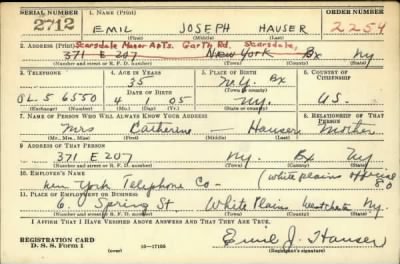 SERIAL NUMBER 1. NAME (Print) ORDER NUMBER
2712 EMIL JOSEPH HAUSER 2254
(First) (Middle) (Last)
Scarsdale Manor Apts. Garth Rd. Scarsdale,
2. ADDRESS (Print)
371 E 207 New York Bx Ny
(Number and street or R. F. D. number) (Town) (County) (State)
3. TELEPHONE 4. AGE IN YEARS 5. PLACE OF BIRTH 6. COUNTRY OF CITIZENSHIP
35 N.Y. Bx
DATE OF BIRTH (Town or county)
OL. 5 6550 4 05 NY. U.S.
(Exchange) (Number) (Mo.) (Day) (Yr.) (State or country)
7. NAME OF PERSON WHO WILL ALWAYS KNOW YOUR ADDRESS 8. RELATIONSHIP OF THAT PERSON
Mrs Catherine — Hauser Mother
(Mr., Mrs., Miss) (First) (Middle) (Last)
9. ADDRESS OF THAT PERSON
371 E 207 Ny. Bx Ny
(Number and street or R. F. D. number) (Town) (County) (State)
10. EMPLOYER'S NAME
New York Telephone Co — (White plains
11. PLACE OF EMPLOYMENT OR BUSINESS
6. Spring St White Plains Ny.
(Number and street or R. F. D. number) (Town) (County) (State)
I AFFIRM THAT I HAVE VERIFIED ABOVE ANSWERS AND THAT THEY ARE TRUE.
REGISTRATION CARD
D. S. S. Form 1 (over) 16—17105 Emil J. Hauser
(Registrant's signature)